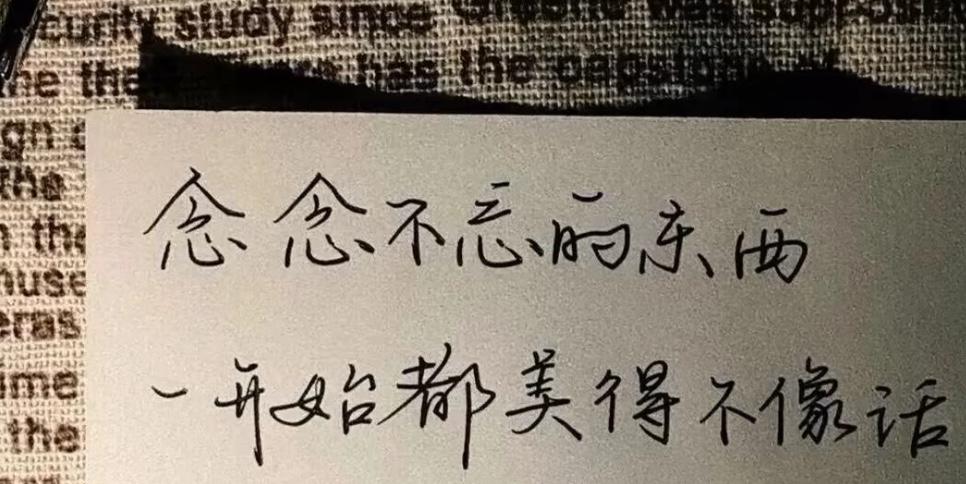 curity study since
the has the
gn
the
the
eras
ime
the
念念不忘的东西
一开始都美得不像话